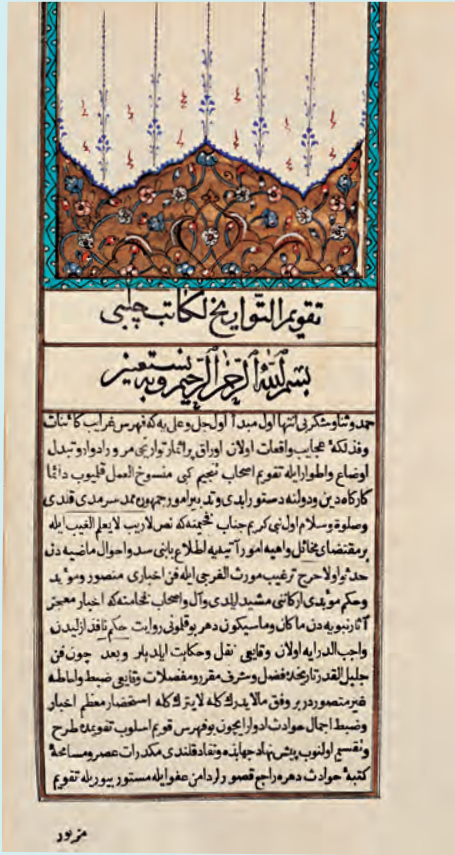 تقويم التواريخ لكاتب چلبى
بسم الله الرحمن الرحيم وبه نستعين
حمد وثنا وشكر بى انتها اول مبدأ اول جل وعلايه كه فهرس غرايب كائنات
وفذلكهٔ عجايب واقعات اولان اوراق پرانمار تواريخى مرور ادوار وتبدل
اوضاع واطوار ايله تقويم اصحاب تنجيم كبى منسوخ العمل قليوب دائما
كارگاه دين ودولته دستور ايدى وتدبير امور جمهوره ممد سرمدى قلدى
وصلوة وسلام اول نبى كريم جناب فخيمنه كه نص لاريب لايعلم الغيب ايله
بر مقتضاى مخائل واهيه امور آتيه يه اطلاع بابنى سد واحوال ماضيه دن
حدثوا ولا حرج ترغيب مورث الفرجى ايله فن اخبارى منصور ومؤيد
وحكم مؤبدى اركاننى مشيد ايلدى وآل واصحاب فخامنه كه اخبار معجز
آثار نبويه دن ماكان وماسيكون دهر بوقلمونى روايت حكم نافذ ازليدن
واجب الدرايه اولان وقايعى نقل وحكايت ايلديلر وبعد چون فن
جليل القدر تاريخده فضل وشرف مقرر ومفصلات وقايعى ضبط واحاطه
غير متصور در بر وفق مالا يدرك كله لايترك كله استحضار معظم اخبار
وضبط اجمال حوادث ادوار ايچون بو فهرس قويم اسلوب تقويمده طرح
وتقسيم اولنوب پيش نهاد جهابذه ونقاد قلندى مكدرات عصر ومسامحهٔ
كتبهٔ حوادث دهره راجع قصور لر دامن عفو ايله مستور بيوريله تقويم
مزبور